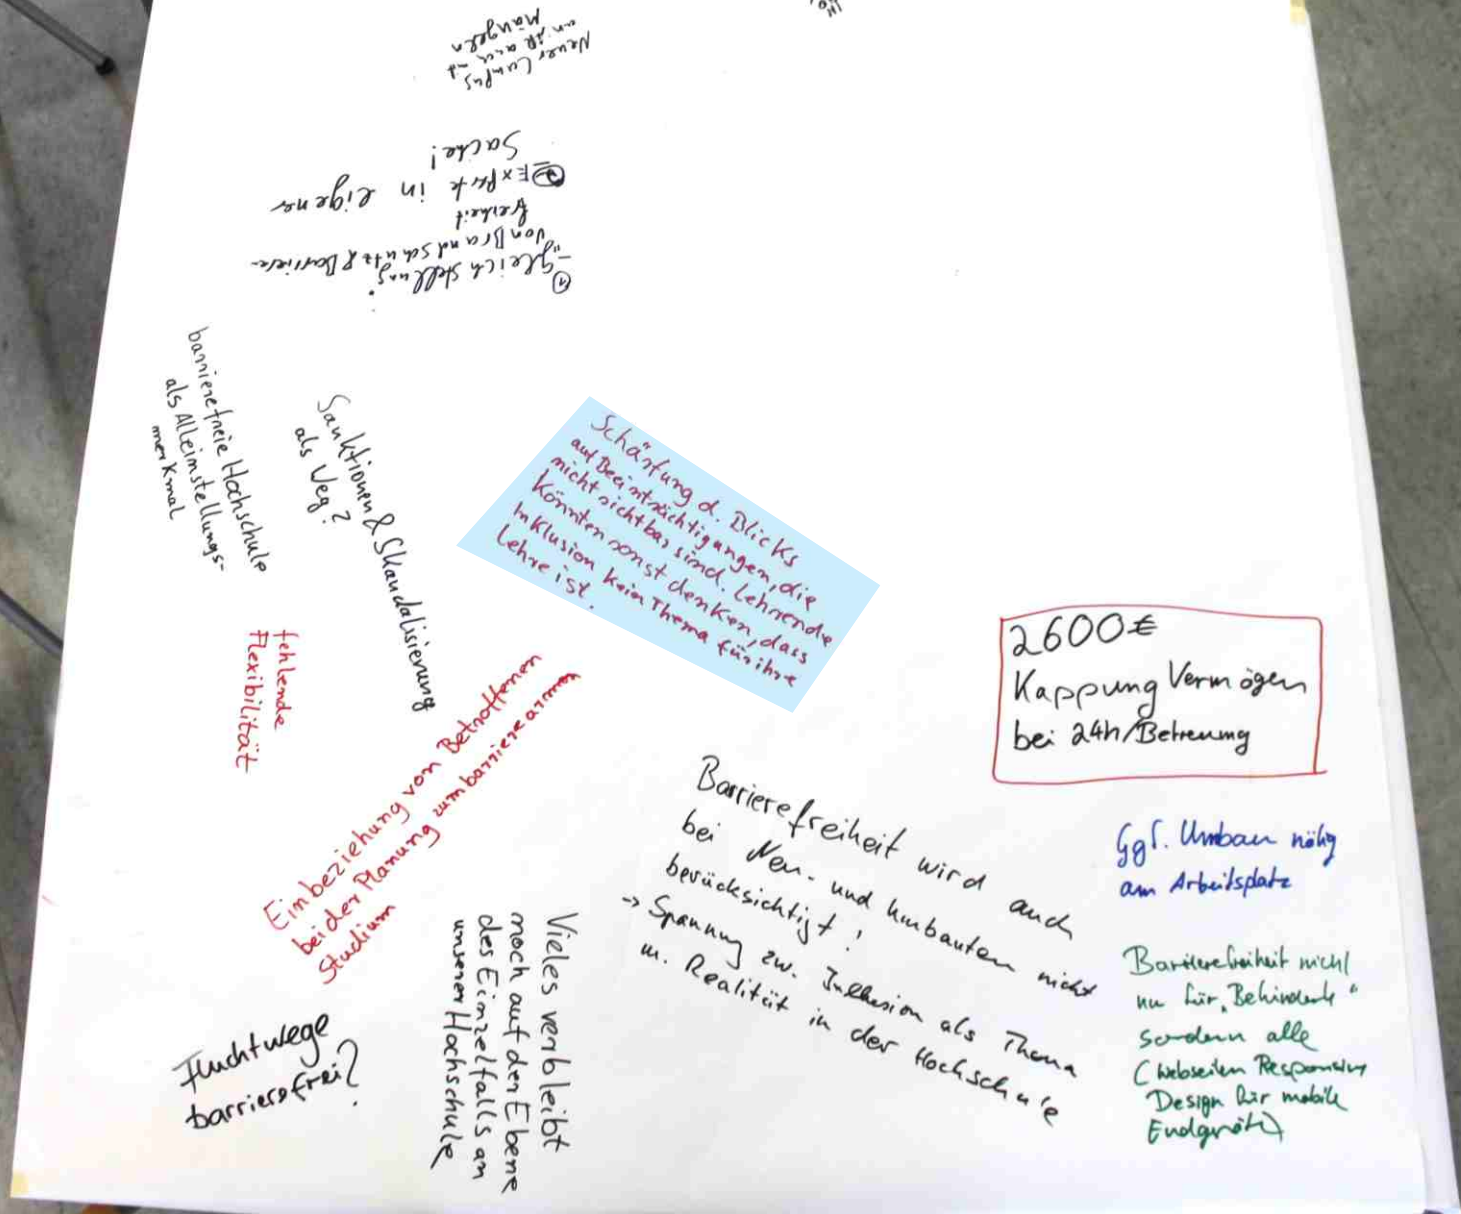 Neuer Campus
Mängeln
① "Gleichstellung"
von Brandschutz & Barriere-
freiheit
② Experte in eigener
Sache!
barrierefreie Hochschule
als Alleinstellungs-
merkmal
Sanktionen & Skandalisierung
als Weg?
Schärfung d. Blicks
auf Beeinträchtigungen, die
nicht sichtbar sind. Lehrende
könnten sonst denken, dass
Inklusion kein Thema für ihre
Lehre ist.
fehlende
Flexibilität
Einbeziehung von Betroffenen
bei der Planung zum barrierearmen
Studium
2600€
Kappung Vermögen
bei 24h/Betreuung
Barrierefreiheit wird auch
bei Neu- und Umbauten nicht
berücksichtigt!
-> Spannung zw. Inklusion als Thema
u. Realität in der Hochschule
Ggf. Umbau nötig
am Arbeitsplatz
Barrierefreiheit nicht
nur für "Behinderte"
sondern alle
(Webseiten Responsive
Design für mobile
Endgeräte)
Vieles verbleibt
noch auf den Ebene
des Einzelfalls an
unserer Hochschule
Fluchtwege
barrierefrei?